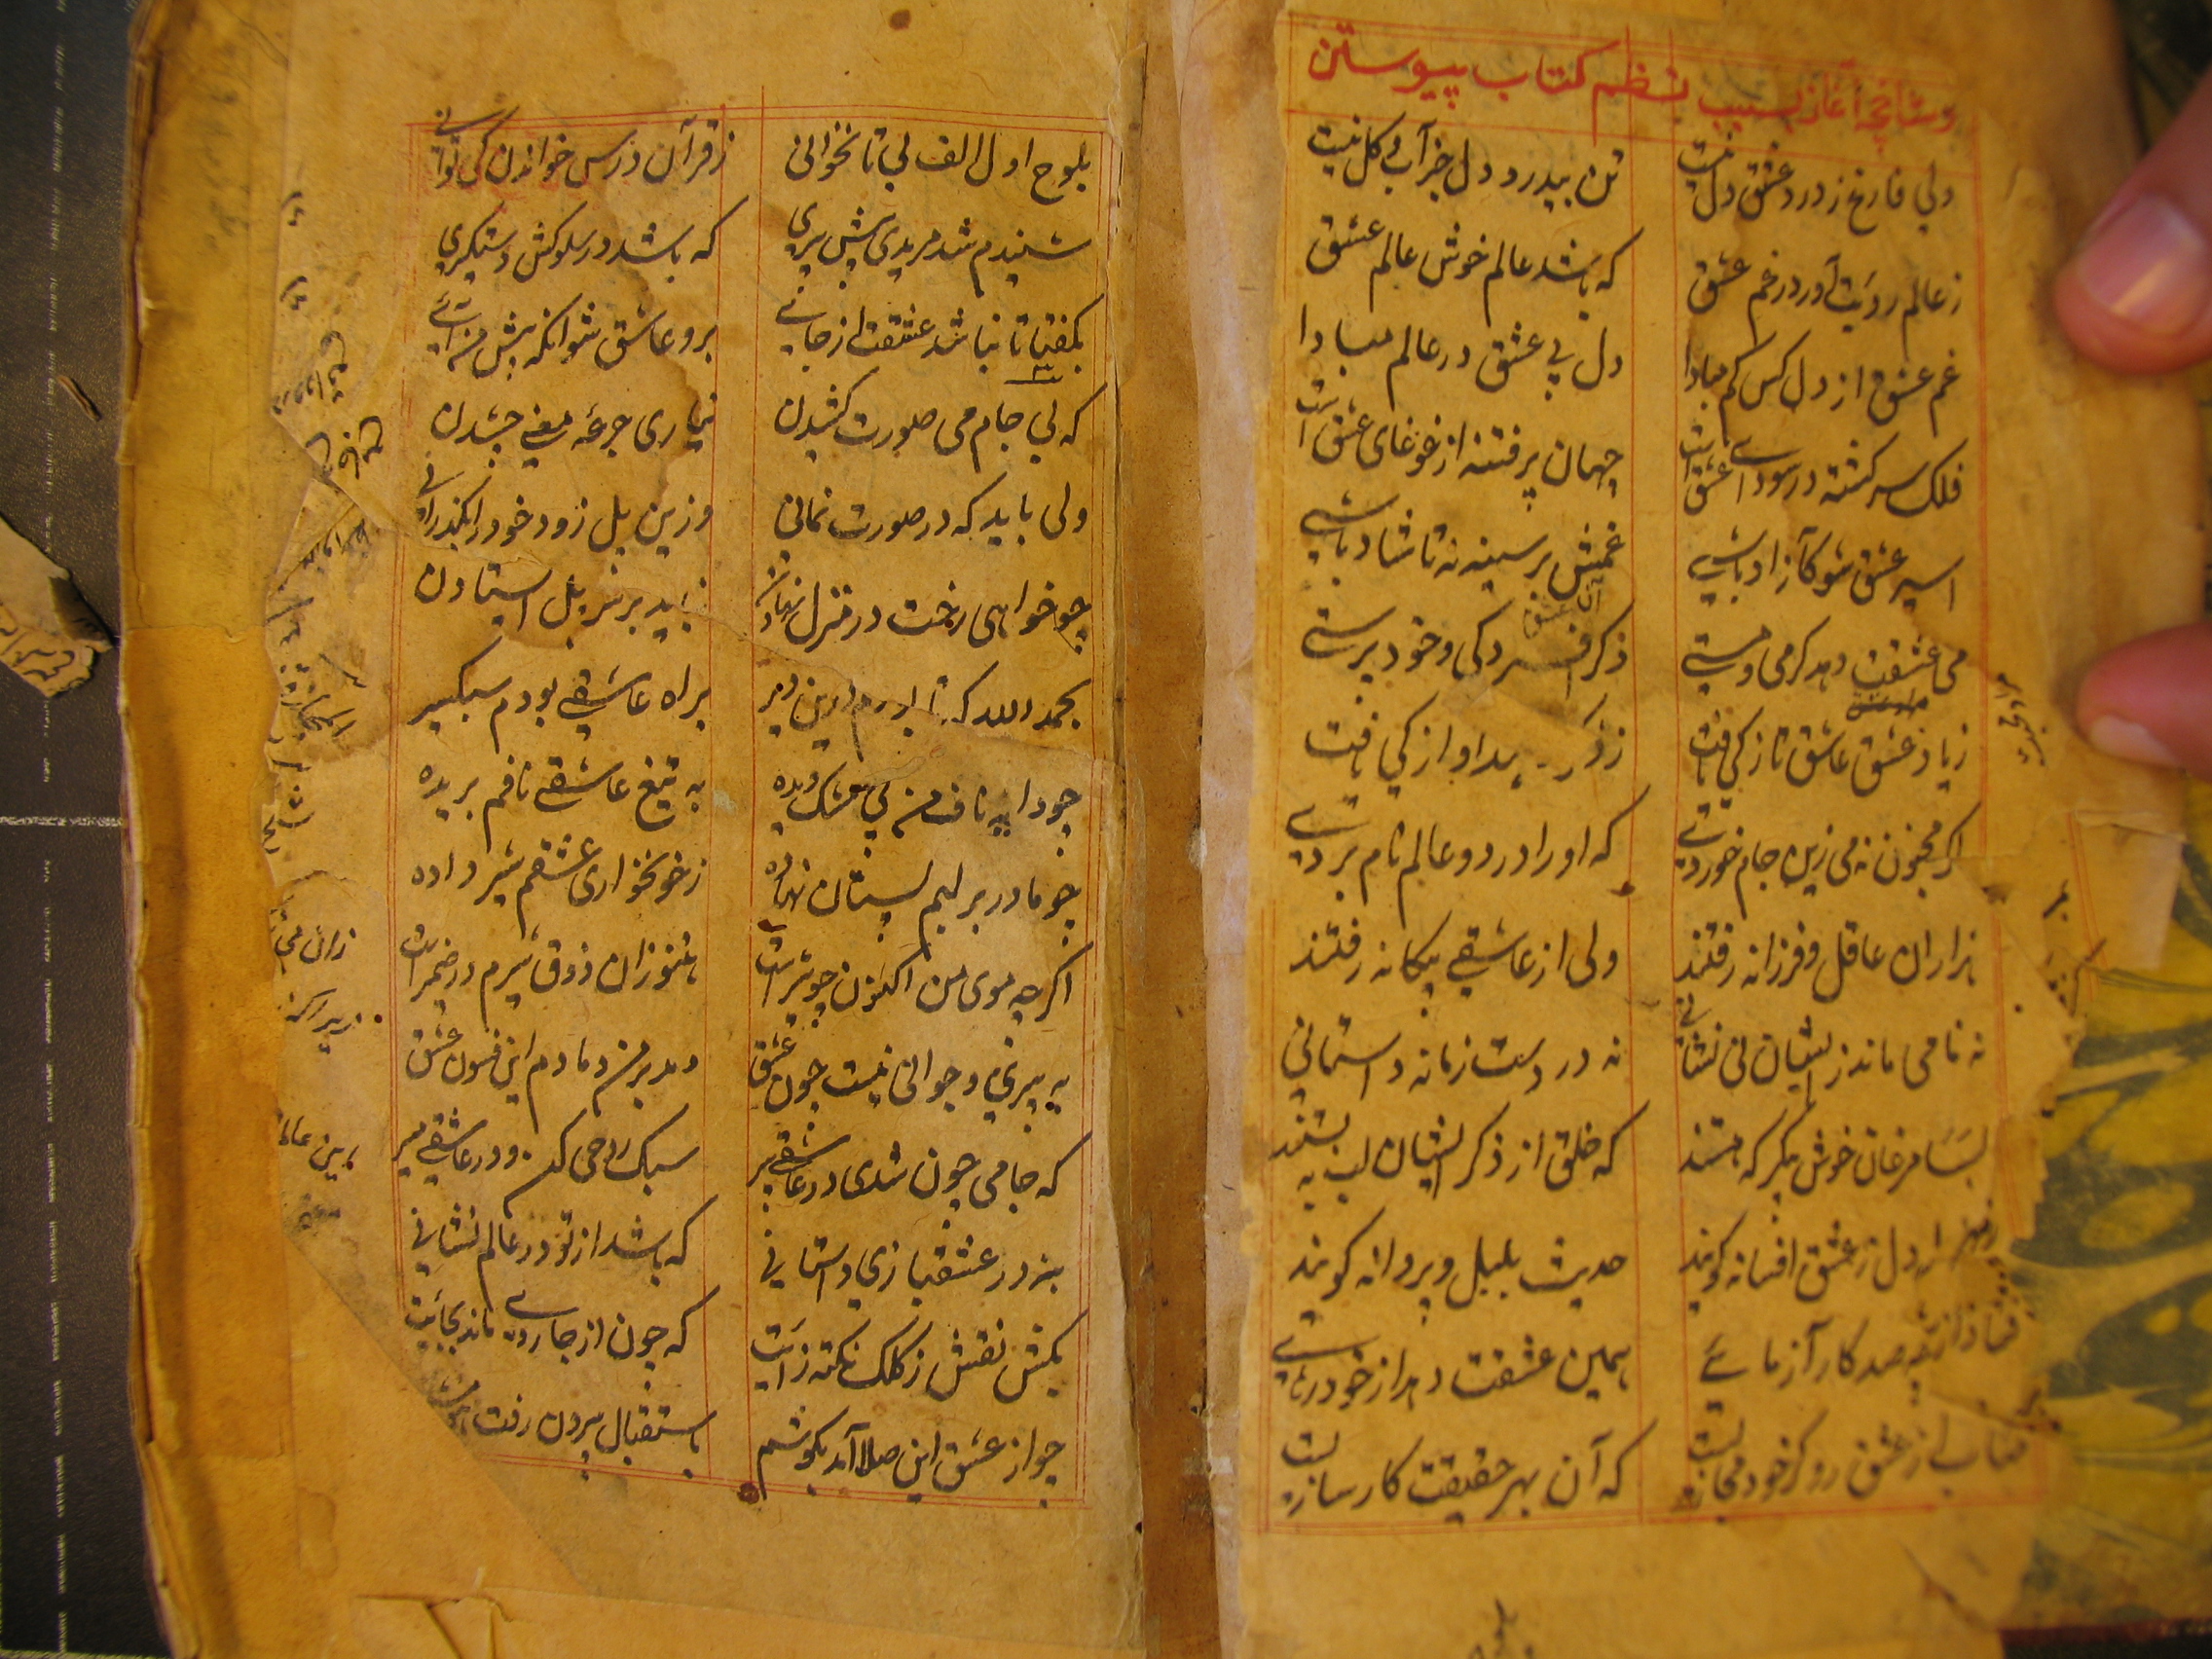 آغاز سبب نظم کتاب پیوستن
دلی فارغ ز درد عشق دل نیست تن بیدرد دل جز آب و کل نیست
ز عالم رویت آور در غم عشق که باشد عالم خوش عالم عشق
غم عشق از دل کس کم مبادا دل بی عشق در عالم مبادا
فلک سرکشته در سودای عشق است جهان پر فتنه از غوغای عشق است
اسیر عشق شو کآزاد باشی غمش بر سینه نه تا شاد باشی
می عشقت دهد کرمی و مستی ذکر افسردکی و خود پرستی
ز یاد عشق عاشق تازکی یافت ز ذکر او بلند اوازکی یافت
اکر مجنون نه می زین جام خوردی که او را در دو عالم نام بردی
هزاران عاقل و فرزانه رفتند ولی از عاشقی بیکانه رفتند
نه نامی ماند ز ایشان نی نشانی نه در دست زمانه داستانی
بسا مرغان خوش پیکر که هستند که خلق از ذکر ایشان لب به بستند
دل ز عشق افسانه کویند حدیث بلبل و پروانه کویند
صد کار آزمائے همین عشقت دهد از خود رهایی
متاب از عشق رو کر خود مجازیست که آن بهر حقیقت کارسازیست
بلوح اول الف بی تا نخوانی ز قرآن درس خواندن کی توانی
شنیدم شد مریدی پیش پیری که باشد در سلوکش دستکیری
بکفتا تا نباشد عشقت از جای برو عاشق شو انکه پیش من آی
که بی جام می صورت کشیدن نیاری جرعه معنی چشیدن
ولی باید که در صورت نمانی وزین پل زود خود را بکذرانی
چو خواهی رخت در منزل نهادن نباید بر سر پل ایستادن
بحمد الله که تا بودم درین دیر براه عاشقی بودم سبکسیر
چو دایه ناف من بی مشک دیده به تیغ عاشقی نافم بریده
چو مادر بر لبم پستان نهاده ز خونخواری عشقم شیر داده
اکرچه موی من اکنون چو شیر است هنوز آن ذوق شیرم در ضمیر است
به پیری و جوانی نیست چون عشق دمد بر من دمادم این فسون عشق
که جامی چون شدی در عاشقی پیر سبک روحی کن و در عاشقی میر
بنه در عشقبازی داستانی که باشد از تو در عالم نشانی
بکش نقش ز کلک نکته زایت که چون از جا روی ماند بجایت
چو از عشق این صلا آمد بکوشم باستقبال بیرون رفت